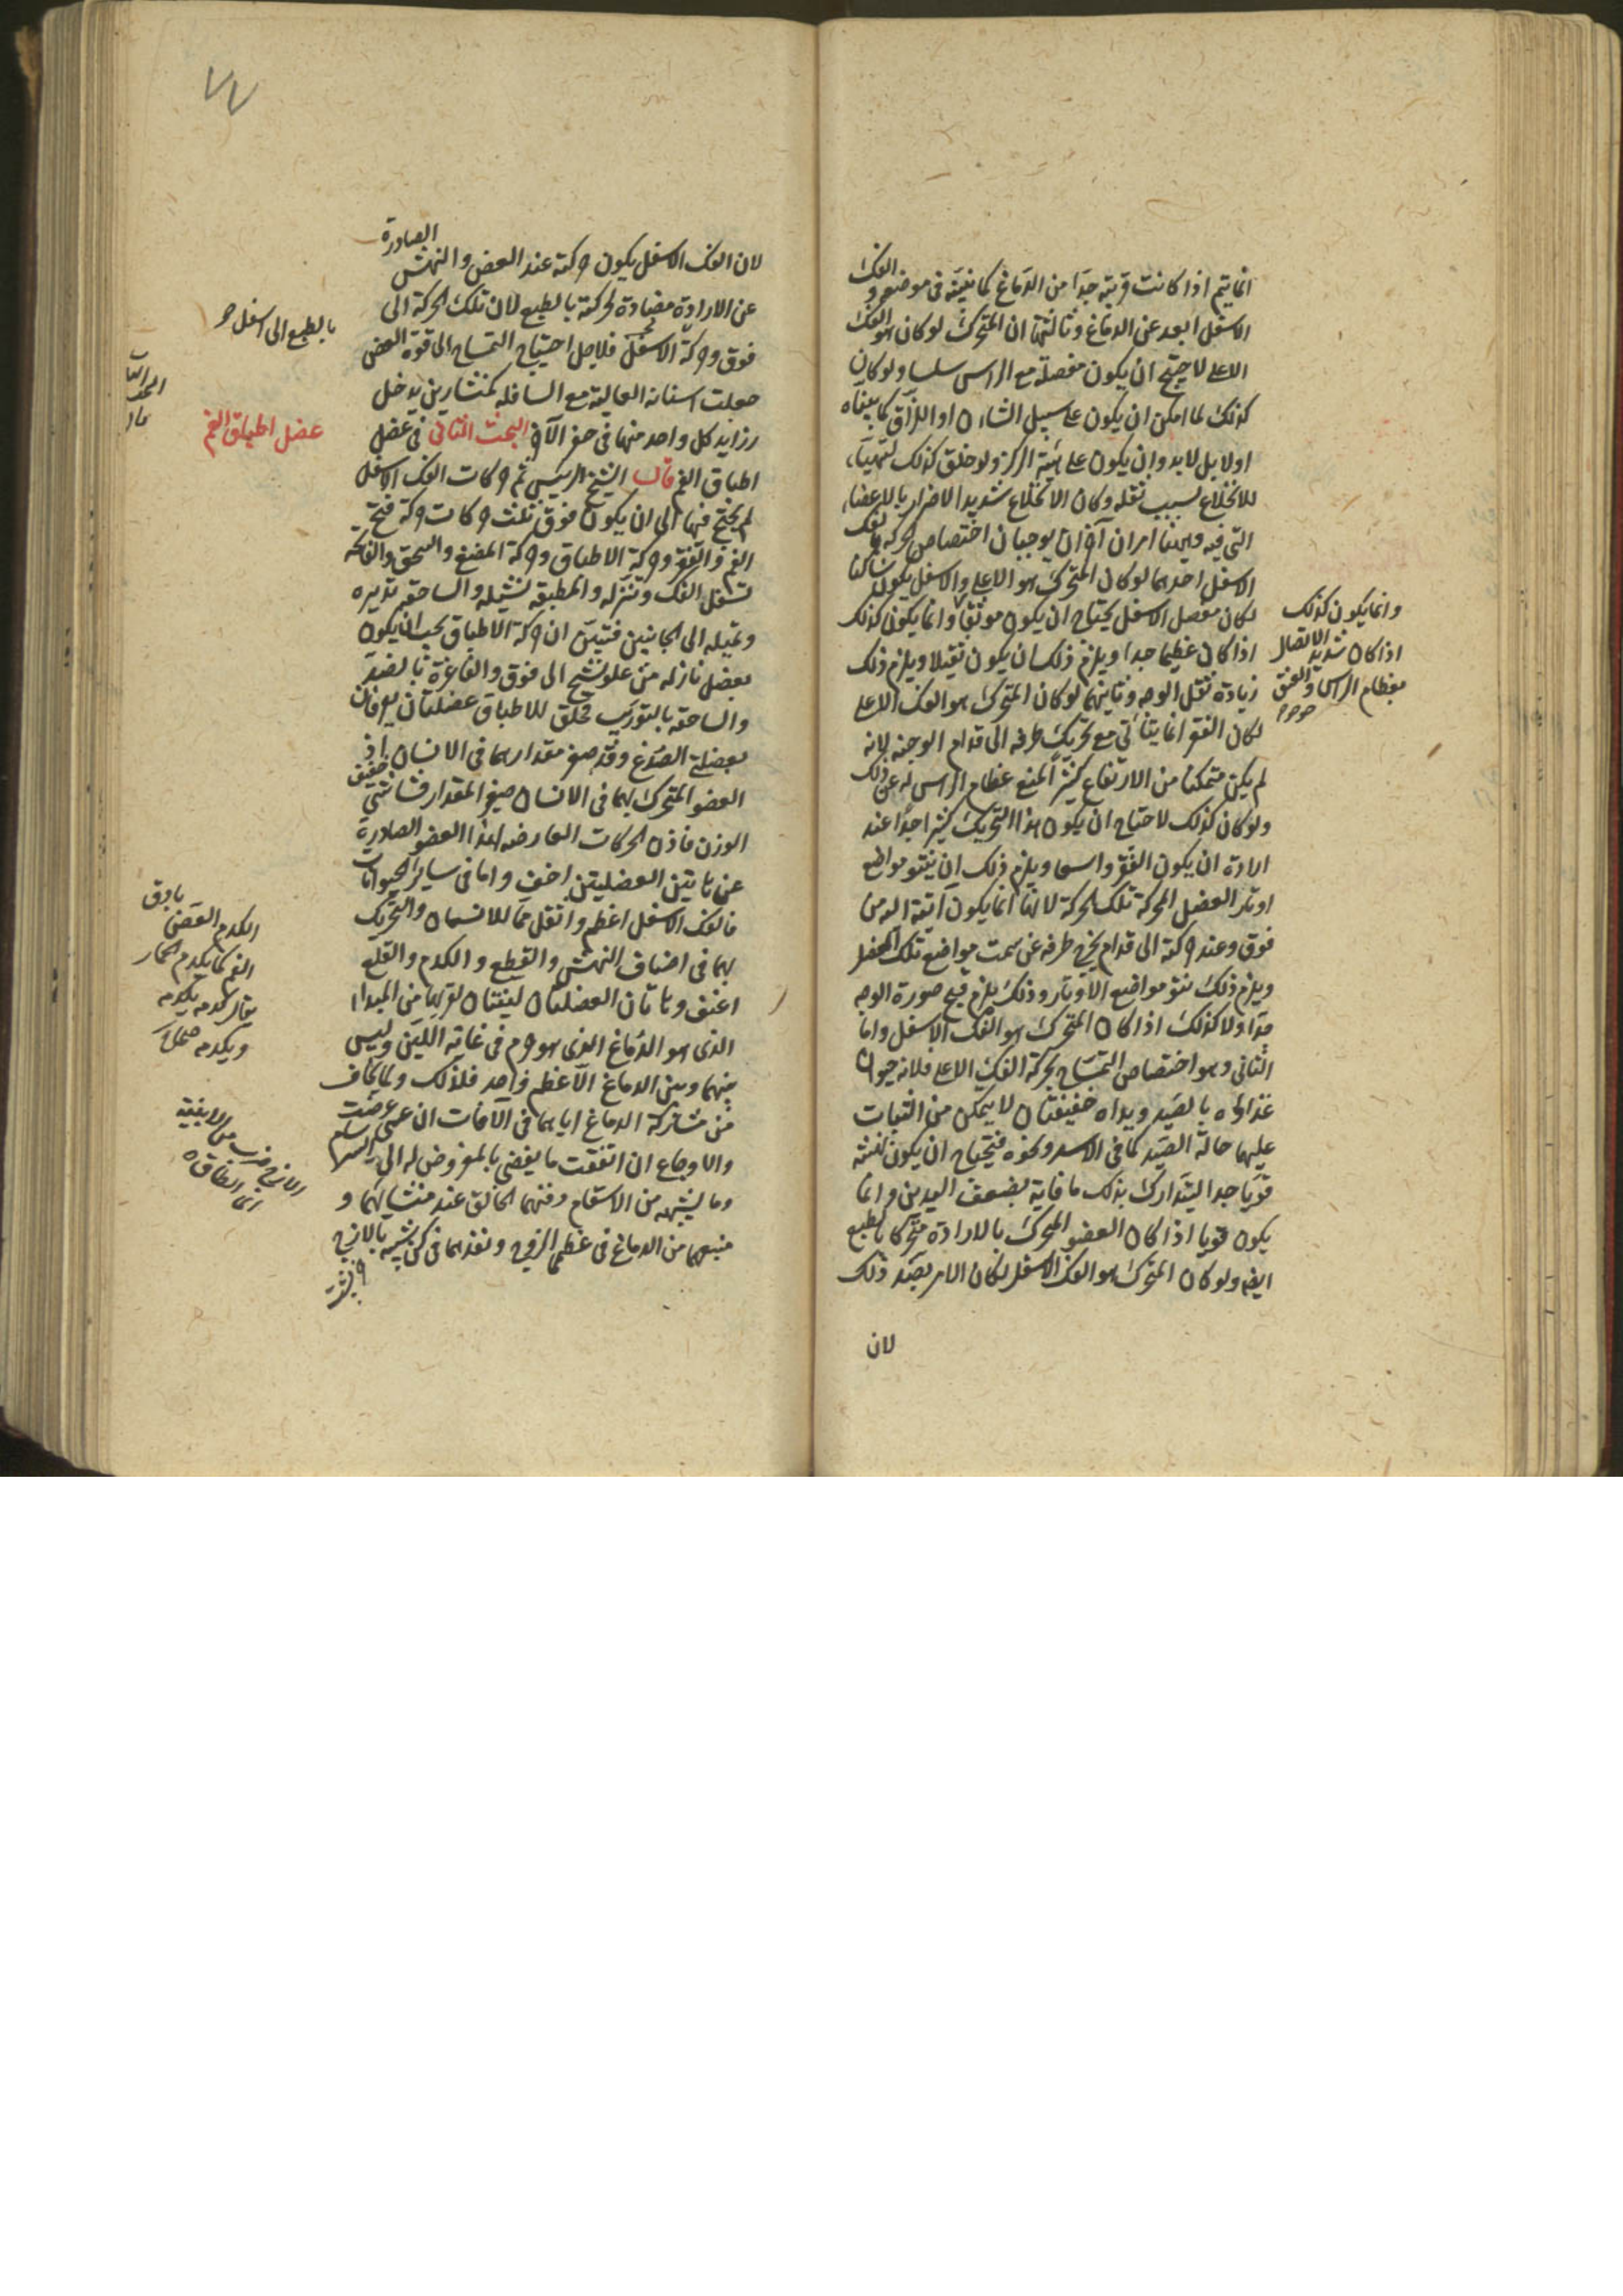 انما يتم اذا كانت قريبة جدا من الدماغ كما نبينه فى موضعه والفك
الاسفل ابعد عن الدماغ وثالثها ان المتحرك لو كان هو الفك
الاعلى لاحتيج ان يكون مفصله مع الراس سلسا ولو كان
كذلك لما امكن ان يكون على سبيل الشان او اللزاق كما بيناه
اولا بل لابد وان يكون على هيئة الركز ولو خلق كذلك لتهيأ
للانخلاع بسبب ثقله وكان الانخلاع شديد الاضرار بالاعضاء
التى فيه وههنا امران آخران يوجبان اختصاص الحركة بالفك
الاسفل احدهما لو كان المتحرك هو الاعلى والاسفل يكون ساكنا
لكان مفصل الاسفل يحتاج ان يكون موثقا وانما يكون كذلك
اذا كان عظيما جدا ويلزم ذلك ان يكون ثقيلا ويلزم ذلك
زيادة ثقل الوجه وثانيهما لو كان المتحرك هو الفك الاعلى
لكان الفغر انما يتأتى مع تحريك طرفه الى قدام الوجنة لانه
لم يكن متمكنا من الارتفاع كثيرا لمنع عظام الراس له عن ذلك
ولو كان كذلك لاحتاج ان يكون هذا التحريك كثيرا جدا عند
ارادة ان يكون الفغر واسعا ويلزم ذلك ان ينتو مواضع
اوتار العضل المحركة تلك الحركة لانها انما يكون آتية اليه من
فوق وعند حركته الى قدام يخرج طرفه عن سمت مواضع تلك العضل
ويلزم ذلك نتو مواضع الاوتار وذلك يلزم قبح صورة الوجه
جدا ولا كذلك اذا كان المتحرك هو الفك الاسفل واما
الثانى وهو اختصاص التمساح بحركة الفك الاعلى فلانه حيوان
غذاؤه بالصيد ويداه ضعيفتان لا يتمكن من الثبات
عليهما حالة الصيد كما فى الاسد ونحوه فيحتاج ان يكون نهشه
قويا جدا ليتدارك بذلك ما فاته بضعف اليدين وانما
يكون قويا اذا كان العضو المتحرك بالارادة متحركا بالطبع
ايضا ولو كان المتحرك هو الفك الاسفل لكان الامر بضد ذلك
لان
وانما يكون كذلك
اذا كان شديد الاتصال
بعظام الراس والعنق
٧٧
لان الفك الاسفل يكون حركته عند العض والنهش الصادرة
عن الارادة مضادة لحركته بالطبع لان تلك الحركة الى
فوق وحركة الاسفل فلاجل احتياج التمساح الى قوة العض
جعلت اسنانه العالية مع السافلة كمنشارين يدخل
زوايد كل واحد منهما فى حفر الآخر البحث الثانى فى عضل
اطباق الفم قال الشيخ الرئيس ثم حركات الفك الاسفل
لم يحتج فيها الى ان يكون فوق ثلث حركات حركة فتح
الفم والفغر وحركة الاطباق وحركة المضغ والسحق والفاتحة
تسفل الفك وتنزله والمطبقة تشيله والساحقة تديره
وتميله الى الجانبين فتبين ان حركة الاطباق يجب ان يكون
بعضل نازله من علو تشنج الى فوق والفاغرة بالضد
والساحقة بالتوريب فخلق للاطباق عضلتان يعرفان
بعضلتى الصدغ وقد صغر مقدارهما فى الانسان اذ
العضو المتحرك بهما فى الانسان صغير المقدار مشاشى خفيف
الوزن فاذن الحركات العارضه لهذا العضو الصادرة
عن هاتين العضليتين اخف واما فى ساير الحيوانات
فالفك الاسفل اعظم واثقل مما للانسان والتحريك
بهما فى اصناف النهش والقطع والكدم والقلع
اعنف وهاتان العضلتان لينتان لقربهما من المبداء
الذى هو الدماغ الذى هو جرم فى غاية اللين وليس
بينهما وبين الدماغ الا عظم واحد فلذلك ولما يخاف
من مشاركة الدماغ اياهما فى الآفات ان عسى عرضت
والاوجاع ان اتفقت ما يفضى بالمعروض له الى السرسام
وما يشبهه من الاسقام دفنهما الخالق عند منشائهما و
منبعهما من الدماغ فى عظمى الزوج ونفذهما فى كن شبيه بالازج
بالطبع الى اسفل
عضل اطباق الفم
الكدم العض بادنى
الفم كما يكدم الحمار
يقال كدمه يكدمه
ويكدمه
الازج ضرب من الابنية